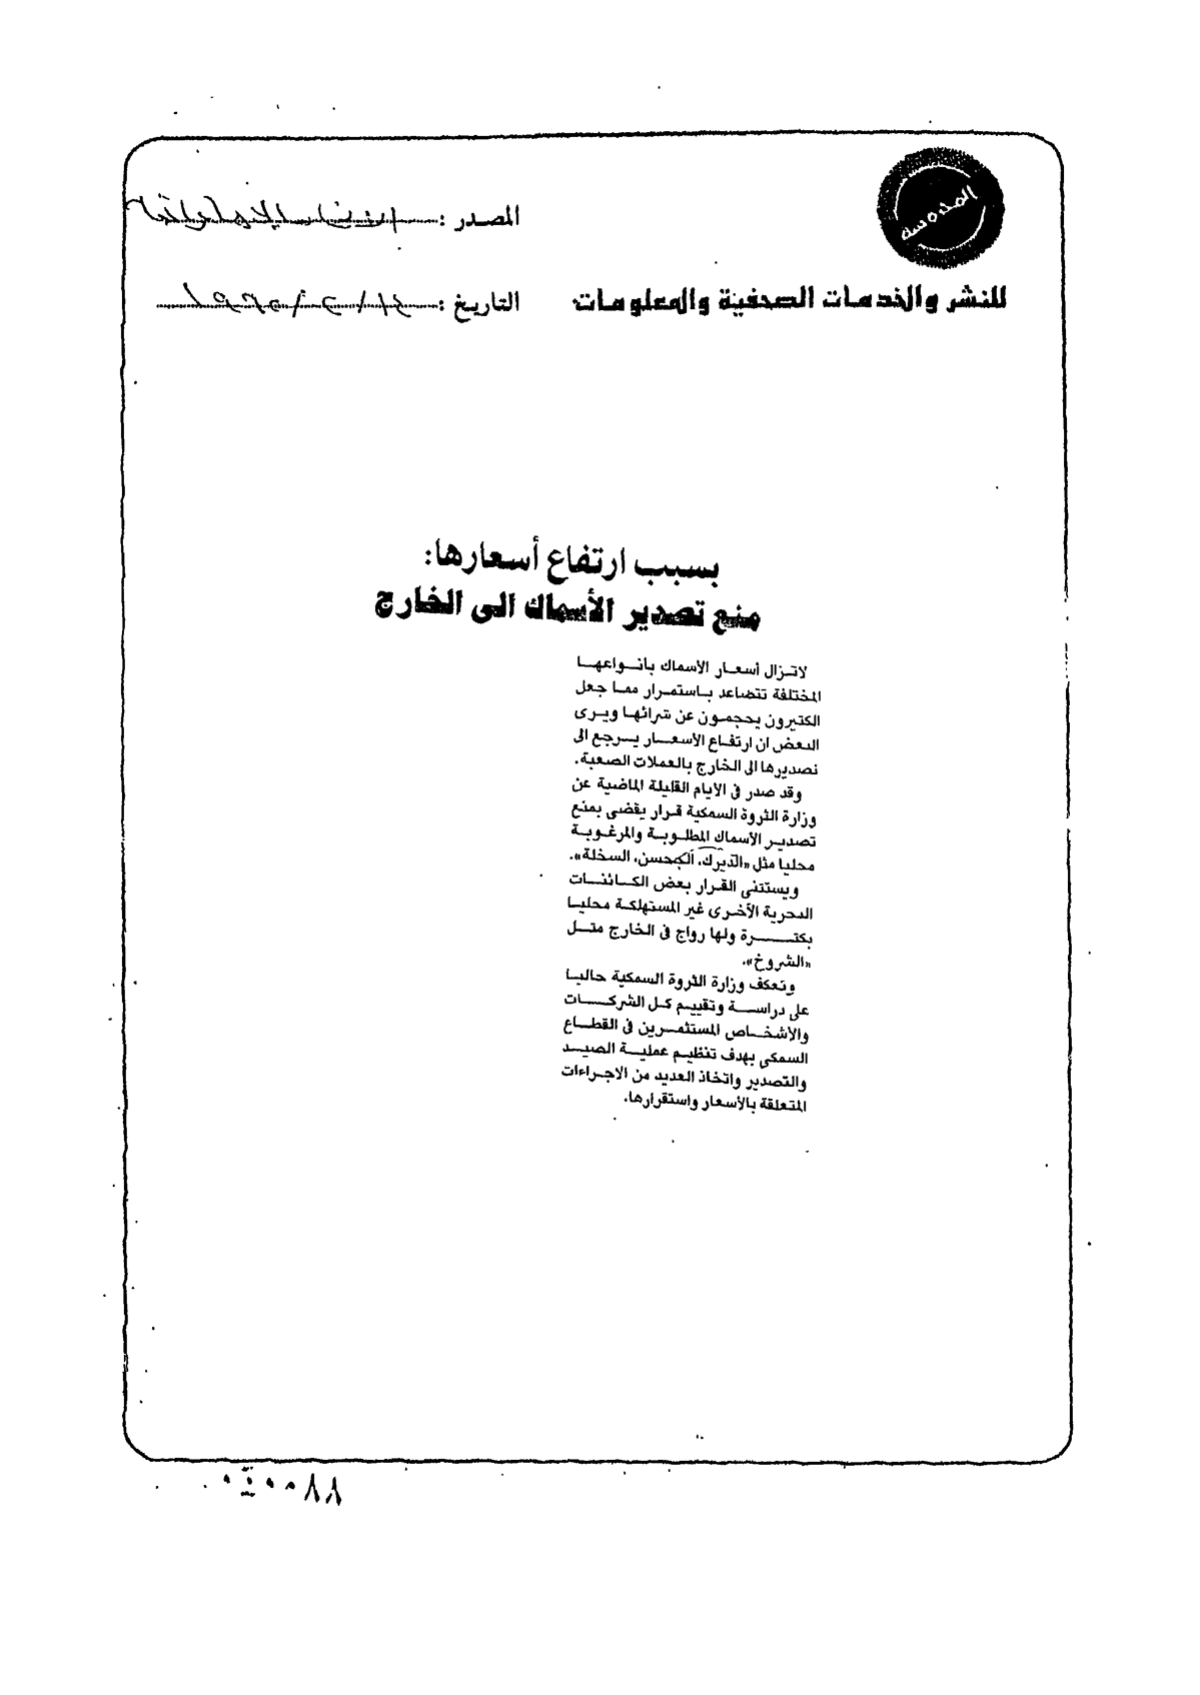 المحروسة
المصدر :
للنشر والخدمات الصحفية والمعلومات
التاريخ :
بسبب ارتفاع أسعارها:
منع تصدير الأسماك الى الخارج
لاتزال أسعار الأسماك بأنواعها
المختلفة تتصاعد باستمرار مما جعل
الكثيرون يحجمون عن شرائها ويرى
البعض ان ارتفاع الأسعار يرجع الى
تصديرها الى الخارج بالعملات الصعبة.
وقد صدر في الايام القليلة الماضية عن
وزارة الثروة السمكية قرار يقضي بمنع
تصدير الأسماك المطلوبة والمرغوبة
محليا مثل «الديرك، الجحسن، السخلة».
ويستثنى القرار بعض الكائنات
البحرية الأخرى غير المستهلكة محليا
بكثرة ولها رواج في الخارج مثل
«الشروخ».
وتعكف وزارة الثروة السمكية حاليا
على دراسة وتقييم كل الشركات
والأشخاص المستثمرين في القطاع
السمكي بهدف تنظيم عملية الصيد
والتصدير واتخاذ العديد من الاجراءات
المتعلقة بالأسعار واستقرارها.